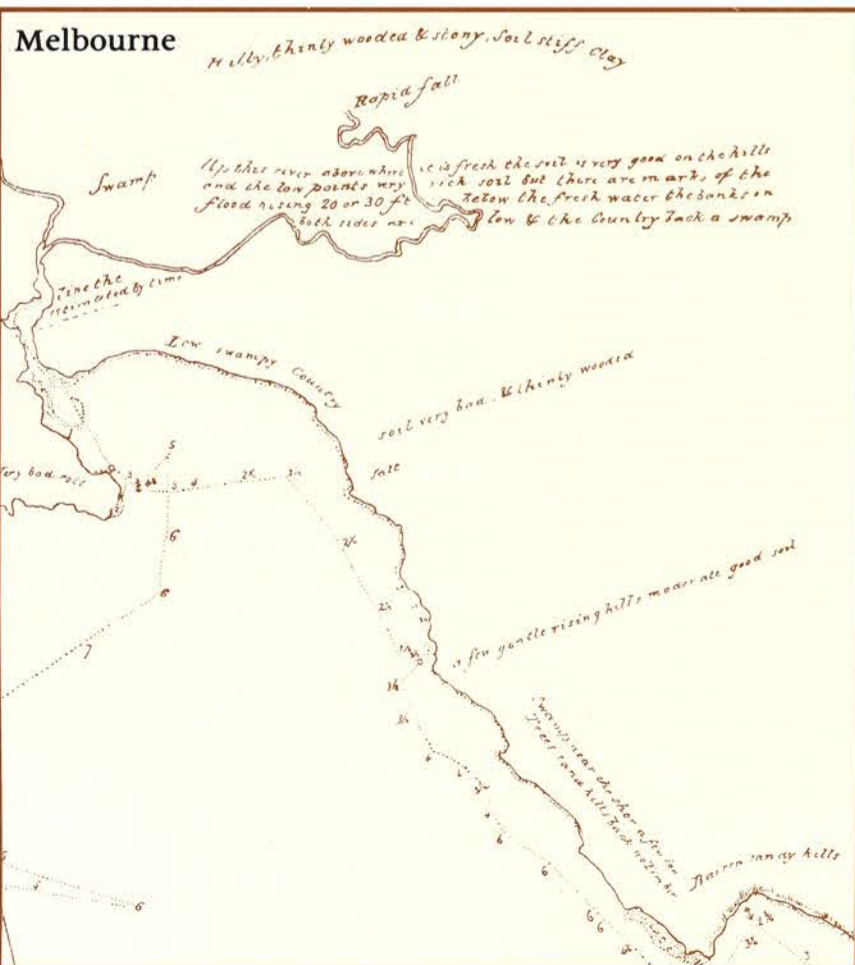 Melbourne
Hilly, thinly wooded & stony, Soil stiff Clay
Rapid fall
Swamp
Up this river above where it is fresh the soil is very good on the hills
and the low points very rich soil but there are marks of the
flood rising 20 or 30 ft below the fresh water the banks on
both sides are low & the Country back a swamp
estimated by time
Low swampy Country
soil very bad & thinly wooded
salt
Very bad
5
3
4
2½
6
6
7
a few gentle rising hills moderate good soil
Swamps near the shor a few low
Trees sand hills back no timber
Barren sandy hills
6
6
6
6
4
6
3